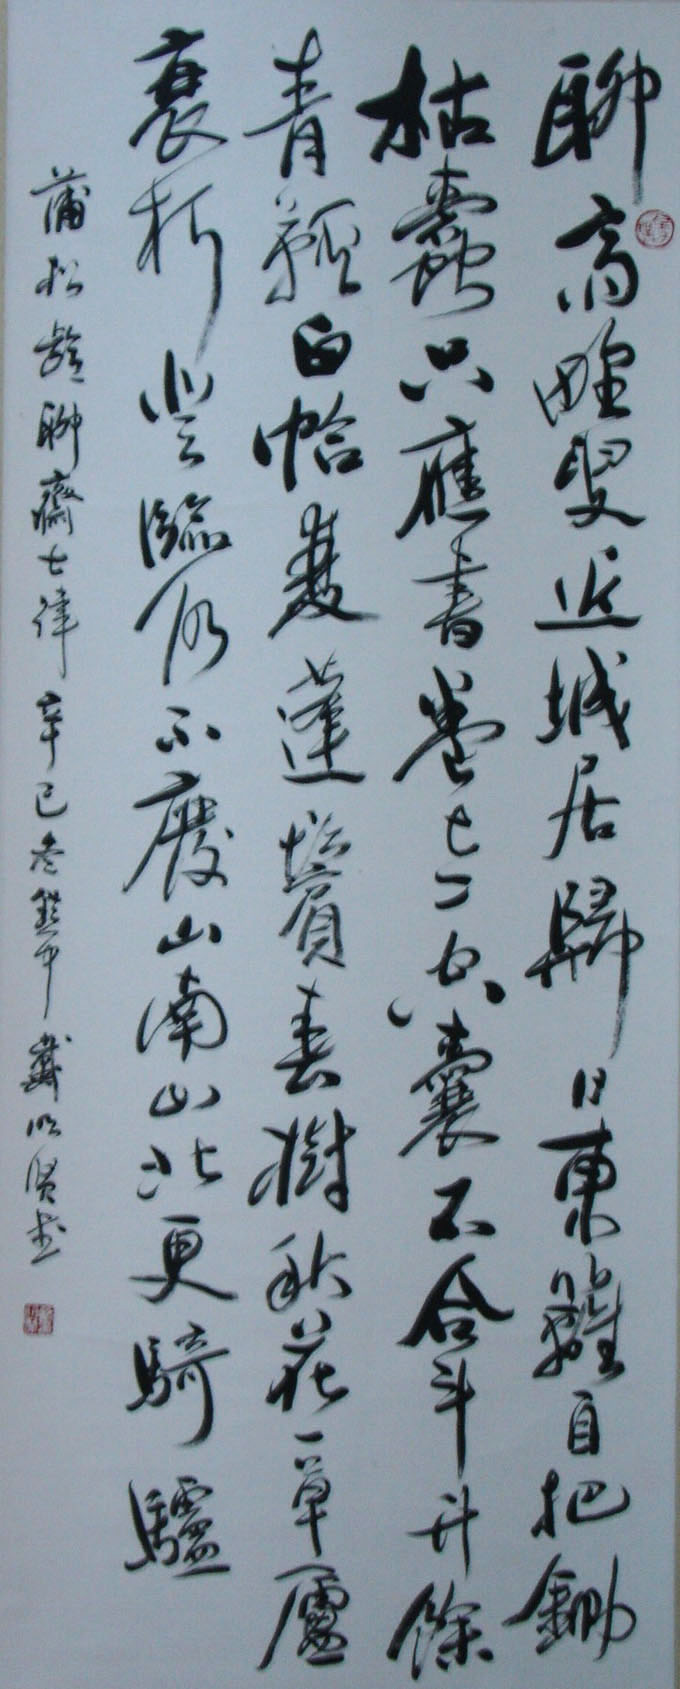 聊齋野叟近城居歸日東籬自把鋤
枯蠹只應書卷老空囊不合斗升餘
青鞋白袷雙蓬鬢春樹秋花一草廬
衰朽登臨仍不廢山南山北更騎驢
蒲松齡聊齋七律 辛巳冬築中 戴明賢書